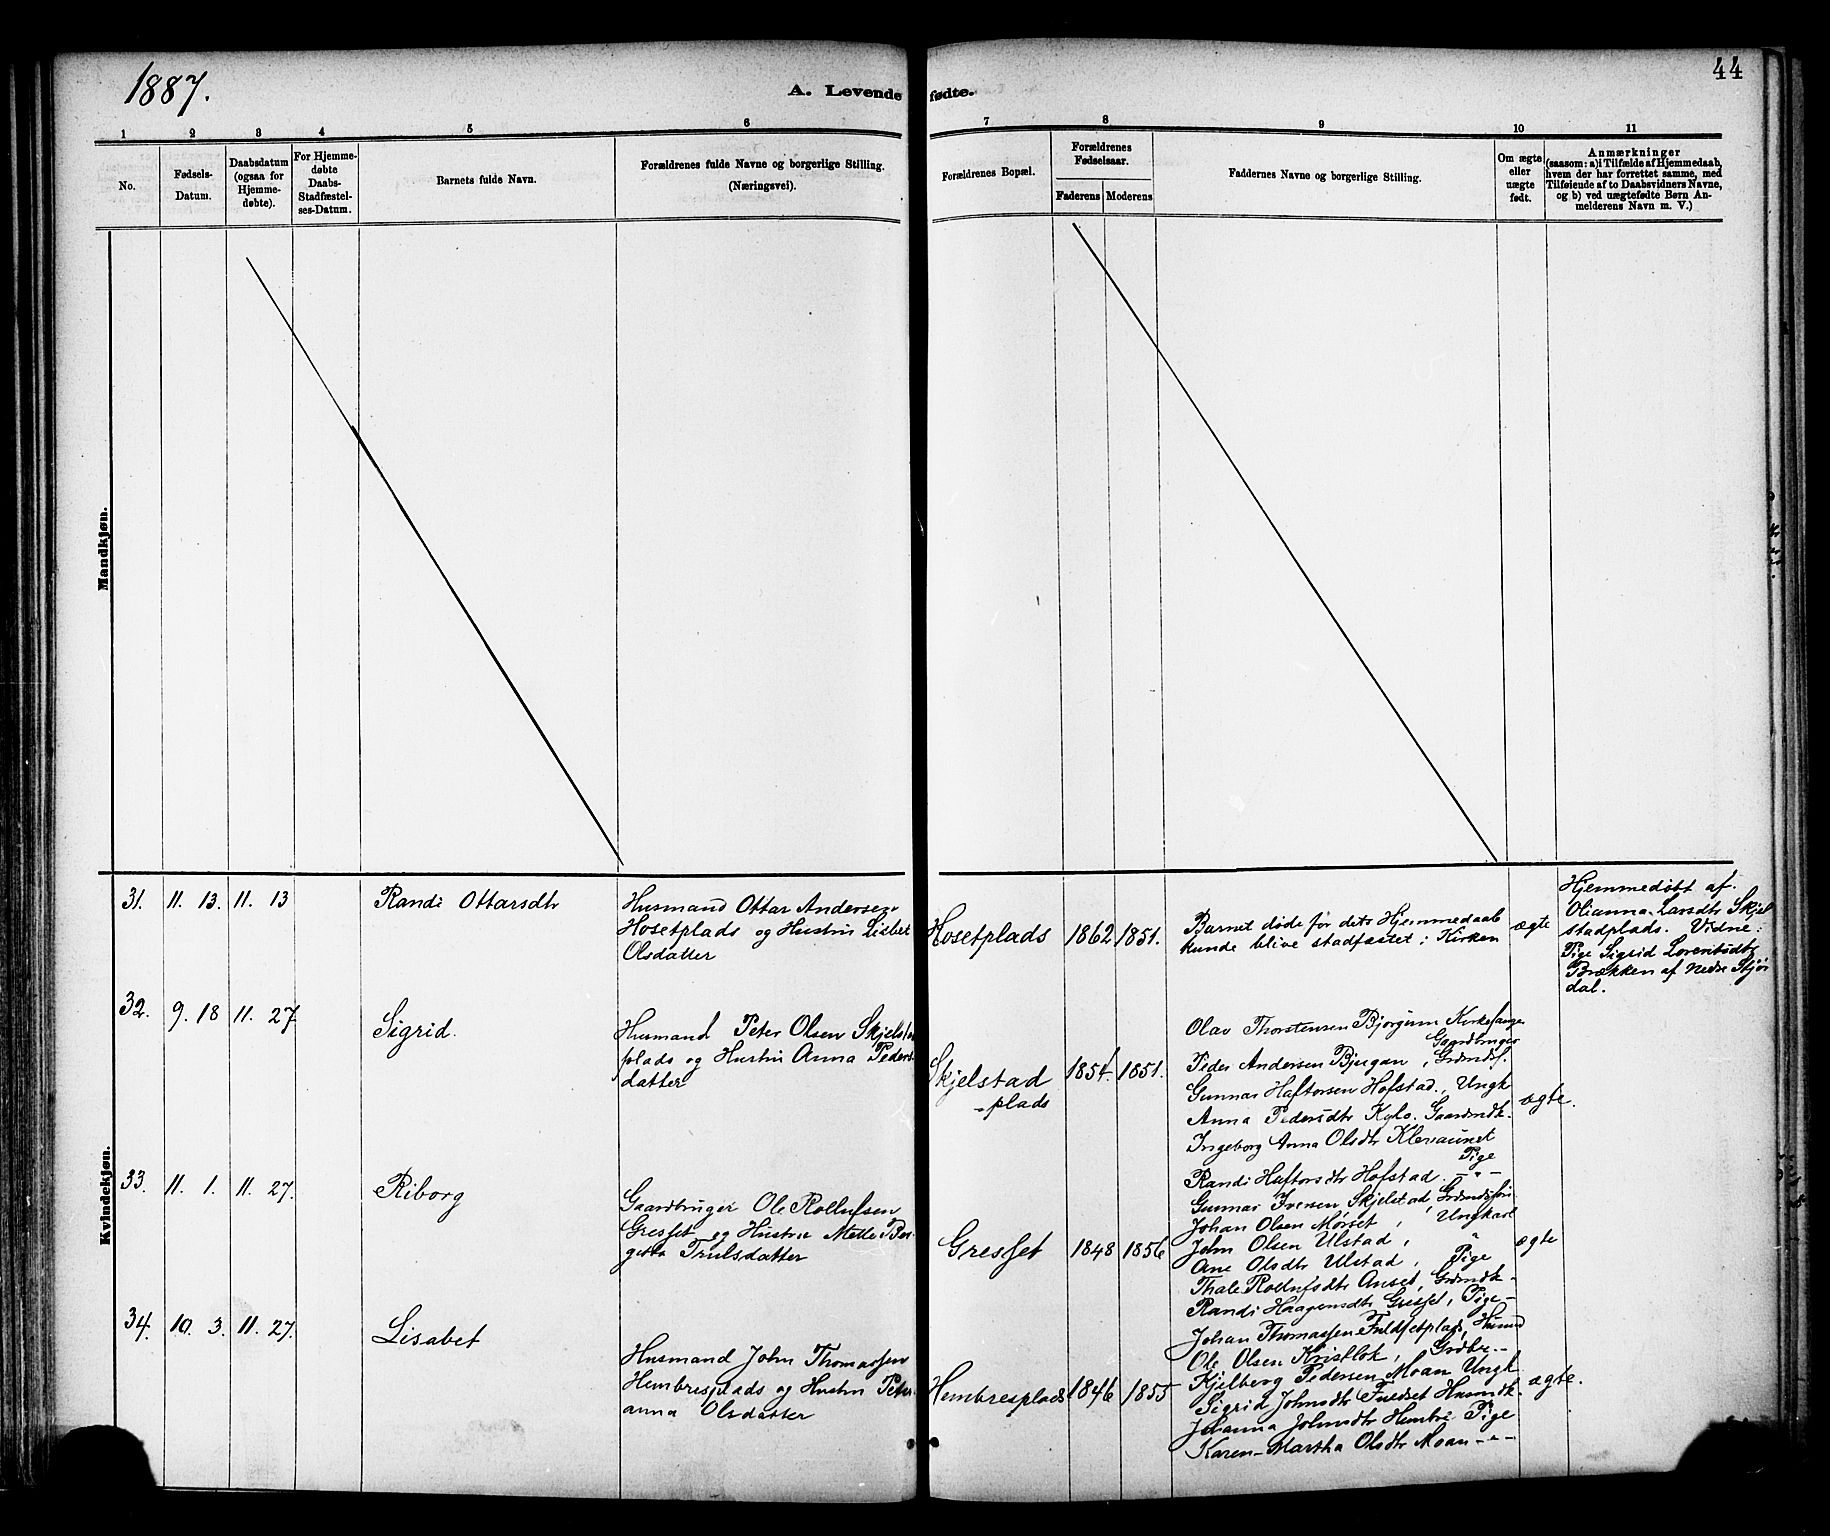 1887.
44
A. Levende fødte.
1 2 3 4 5 6 7 8 9 10 11
No.
Fødsels-
Datum.
Daabsdatum
(ogsaa for
Hjemme-
døbte).
For Hjemme-
døbte
Daabs-
Stadfæstel-
ses-Datum.
Barnets fulde Navn.
Forældrenes fulde Navne og borgerlige Stilling.
(Næringsvei).
Forældrenes Bopæl.
Forældrenes
Fødselsaar.
Faderens Moderens
Faddernes Navne og borgerlige Stilling.
Om ægte
eller
uægte
født.
Anmærkninger
(saasom: a) i Tilfælde af Hjemmedaab,
hvem der har forrettet samme, med
Tilføiende af to Daabsvidners Navne,
og b) ved uægtefødte Børn An-
melderens Navn m. V.)
Mandkjøn.
Kvindekjøn.
31. 11. 13. 11. 13
Randi Ottarsdtr
Husmand Ottar Andersen
Hosetplads og Hustru Lisbet
Olsdatter
Hosetplads 1862 1851.
Barnet døde før dets Hjemmedaab
kunde blive stadfæstet i Kirken
ægte
Hjemmedøbt af
Olianna Larsdtr Skjel
stadplads. Vidne:
Pige Sigrid Lorentsdtr
Brækken af Nedre Stjør
dal.
32. 9. 18 11. 27.
Sigrid.
Husmand Peter Olsen Skjelstad
plads og Hustru Anna Peders
datter
Skjelstad
-plads
1854. 1851.
Olav Thorstensen Bjorgum Kirkesanger
Gaardbruger
Peder Andersen Bjugan, Grdmdsf.
Gunnar Haftorsen Hofstad, Ungk
Anna Pedersdtr Kylo. Gaardmdk.
Ingeborg Anna Olsdtr Klevaunet
Pige
Randi Haftorsdtr Hofstad. -"-
ægte.
33. 11. 1. 11. 27.
Riborg
Gaardbruger Ole Rollufsen
Gresset og Hustru Mette Ber
getta Trulsdatter
Gresset 1848 1856
Gunnar Iversen Skjelstad, Grdmdsføn
Johan Olsen Mørset, Ungkarl
John Olsen Ulstad, "
Ane Olsdtr Ulstad, Pige
Thale Rollufsdtr Anset, Grdmdk-
Randi Haagensdtr Gresset, Pige-
ægte
34. 10. 3. 11. 27.
Lisabet
Husmand John Thomassen
Hembresplads og Hustru Peter
anna Olsdatter
Hembresplads 1846 1855
Johan Thomassen Fuldsetplads, Husmd
Ole Olsen Kristlok, Grdbr.-
Kjelberg Pedersen Moan Ungk
Sigrid Johnsdtr Fuldset Husmdk.
Johanna Johnsdtr Hembre Pige
Karen-Martha Olsdtr Moan -"-
ægte.